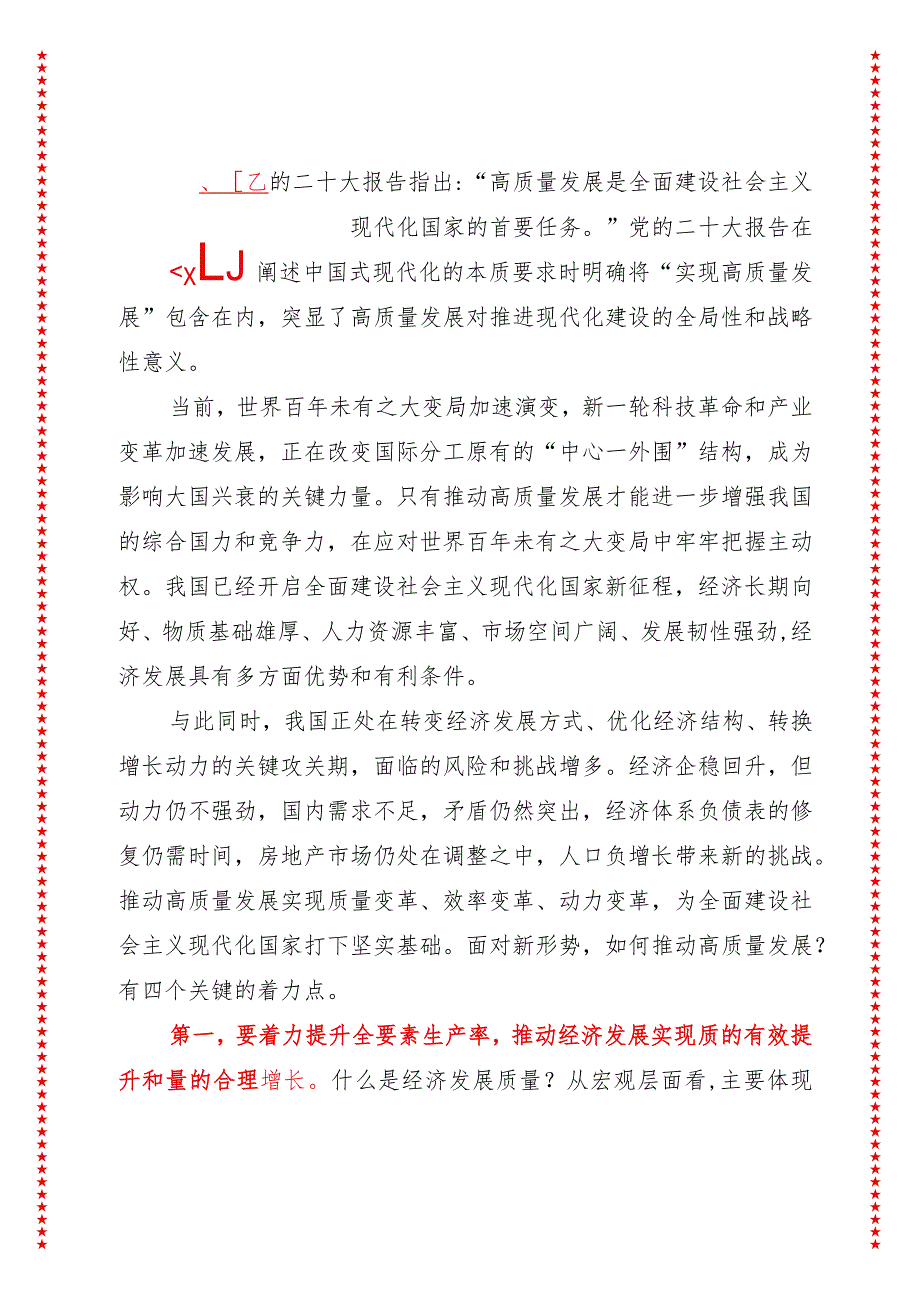 、[乙的二十大报告指出：“高质量发展是全面建设社会主义
现代化国家的首要任务。”党的二十大报告在
<XLJ 阐述中国式现代化的本质要求时明确将“实现高质量发
展”包含在内，突显了高质量发展对推进现代化建设的全局性和战略
性意义。
当前，世界百年未有之大变局加速演变，新一轮科技革命和产业
变革加速发展，正在改变国际分工原有的“中心一外围”结构，成为
影响大国兴衰的关键力量。只有推动高质量发展才能进一步增强我国
的综合国力和竞争力，在应对世界百年未有之大变局中牢牢把握主动
权。我国已经开启全面建设社会主义现代化国家新征程，经济长期向
好、物质基础雄厚、人力资源丰富、市场空间广阔、发展韧性强劲,经
济发展具有多方面优势和有利条件。
与此同时，我国正处在转变经济发展方式、优化经济结构、转换
增长动力的关键攻关期，面临的风险和挑战增多。经济企稳回升，但
动力仍不强劲，国内需求不足，矛盾仍然突出，经济体系负债表的修
复仍需时间，房地产市场仍处在调整之中，人口负增长带来新的挑战。
推动高质量发展实现质量变革、效率变革、动力变革，为全面建设社
会主义现代化国家打下坚实基础。面对新形势，如何推动高质量发展？
有四个关键的着力点。
第一，要着力提升全要素生产率，推动经济发展实现质的有效提
升和量的合理增长。什么是经济发展质量？从宏观层面看,主要体现